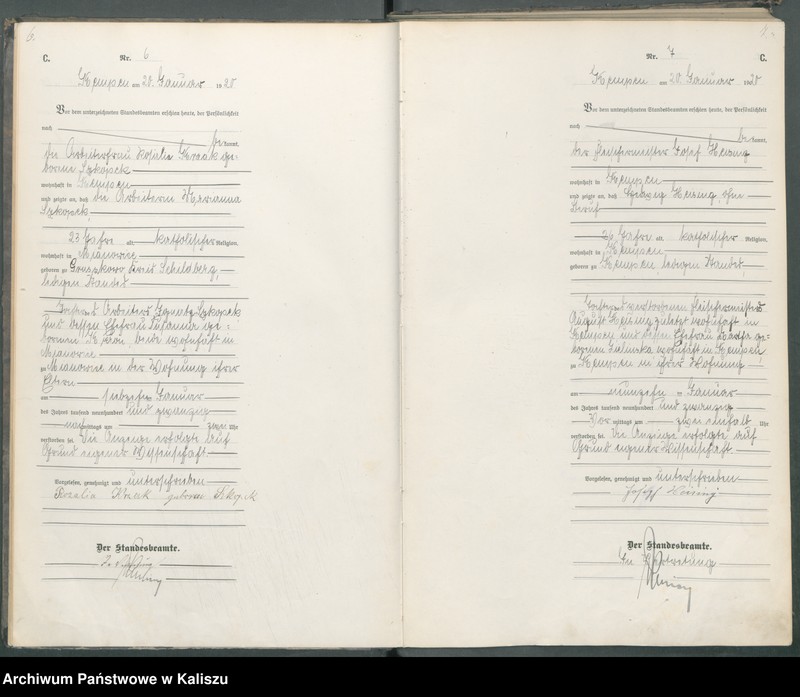 6.
C.
Nr. 6
Kempen am 20. Januar 1920
Vor dem unterzeichneten Standesbeamten erschien heute, der Persönlichkeit
nach
bekannt,
die Arbeiterfrau Rosalie ge-
borene Szkopek
wohnhaft in Kempen
und zeigte an, daß die Arbeiterin Marianna
Szkopek,
23 Jahre alt, katholischer Religion,
wohnhaft in Mianowice
geboren zu Kreis Schildberg,
ledigen Standes
Tochter des Arbeiters Szkopek
und dessen Ehefrau ge-
borenen beide wohnhaft in
Mianowice
zu Mianowice in der Wohnung ihrer
Eltern
am siebzehn Januar
des Jahres tausend neunhundert und zwanzig
nachmittags um zwei Uhr
verstorben sei. Die Anzeige erfolgte auf
Grund eigener Wissenschaft
Vorgelesen, genehmigt und unterschrieben
Rozalia geborene Szkopek
Der Standesbeamte.
7.
Nr. 7
C.
Kempen am 20. Januar 1920
Vor dem unterzeichneten Standesbeamten erschien heute, der Persönlichkeit
nach
bekannt,
der Fleischermeister Josef
wohnhaft in Kempen
und zeigte an, daß ohne
Beruf
26 Jahre alt, katholischer Religion,
wohnhaft in Kempen
geboren zu Kempen ledigen Standes,
Tochter des verstorbenen Fleischermeisters
August zuletzt wohnhaft in
Kempen und dessen Ehefrau ge-
borenen Zielinska wohnhaft in Kempen
zu Kempen in ihrer Wohnung
am neunzehn Januar
des Jahres tausend neunhundert und zwanzig
Vormittags um zwei einhalb Uhr
verstorben sei. Die Anzeige erfolgte auf
Grund eigener Wissenschaft
Vorgelesen, genehmigt und unterschrieben
Der Standesbeamte.
In Vertretung
Archiwum Państwowe w Kaliszu